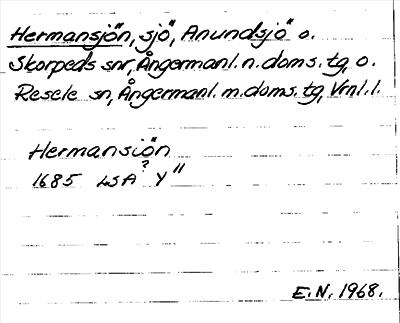 Hermansjön, sjö, Anundsjö o.
Skorpeds snr, Ångermanl. n. doms. tg, o.
Resele sn, Ångermanl. m. doms. tg, Vrnl. l.
Hermansiön
1685 LSA ? Y 11
E.N. 1968.